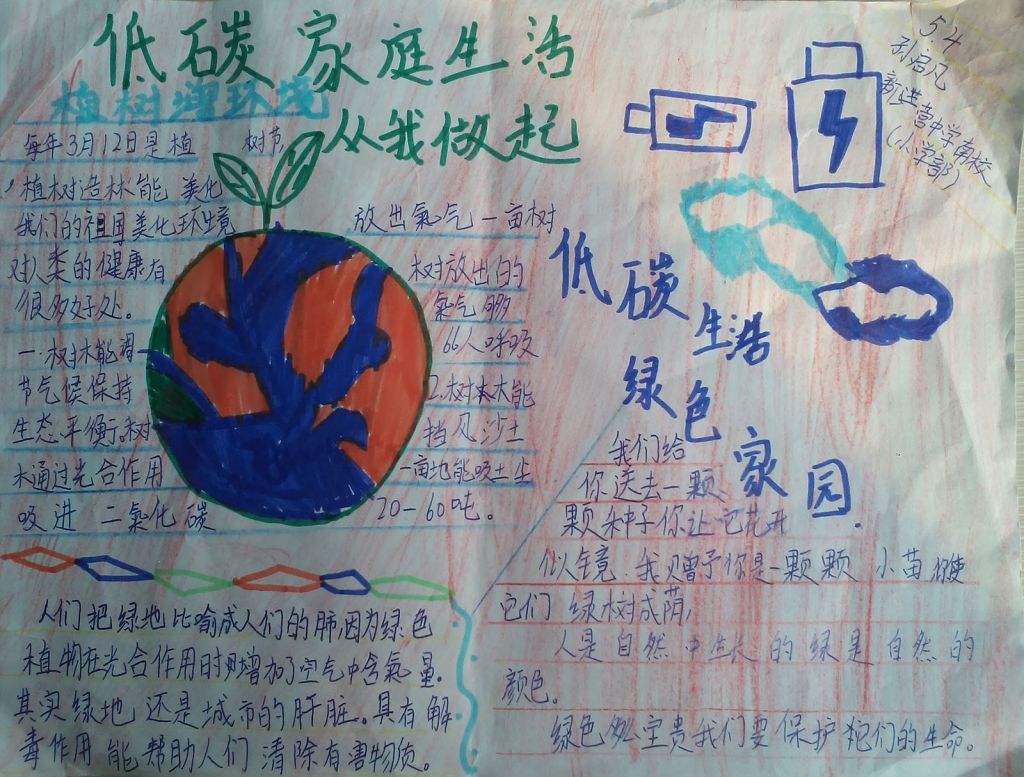 低碳家庭生活
从我做起
植树增环境
5.4
孙启凡
新进营中学南校
(小学部)
每年3月12日是植 树节,
植树造林能 美化
我们的祖国美化环境
对人类的健康有
很多好处。
一.树木能
节气候保持
生态平衡,树
木通过光合作用
吸进 二氧化碳
放出氧气 一亩树
树放出的
氧气够
66人呼吸
2.树木大能
挡风沙土
一亩地能吸土尘
20-60吨。
低碳
生活
绿色
家园
我们给
你送去一颗
颗种子你让它花开
似镜.我贝曾予你是一颗颗 小苗 你使
它们 绿树成荫,
人是自然中生长的绿是自然的
颜色。
绿色 宝贵我们要保护 们的生命。
人们把绿地比喻成人们的肺,因为绿色
植物在光合作用时增加了空气中含氧量.
其实绿地还是城市的肝脏。具有解
毒作用能帮助人们清除有害物质。